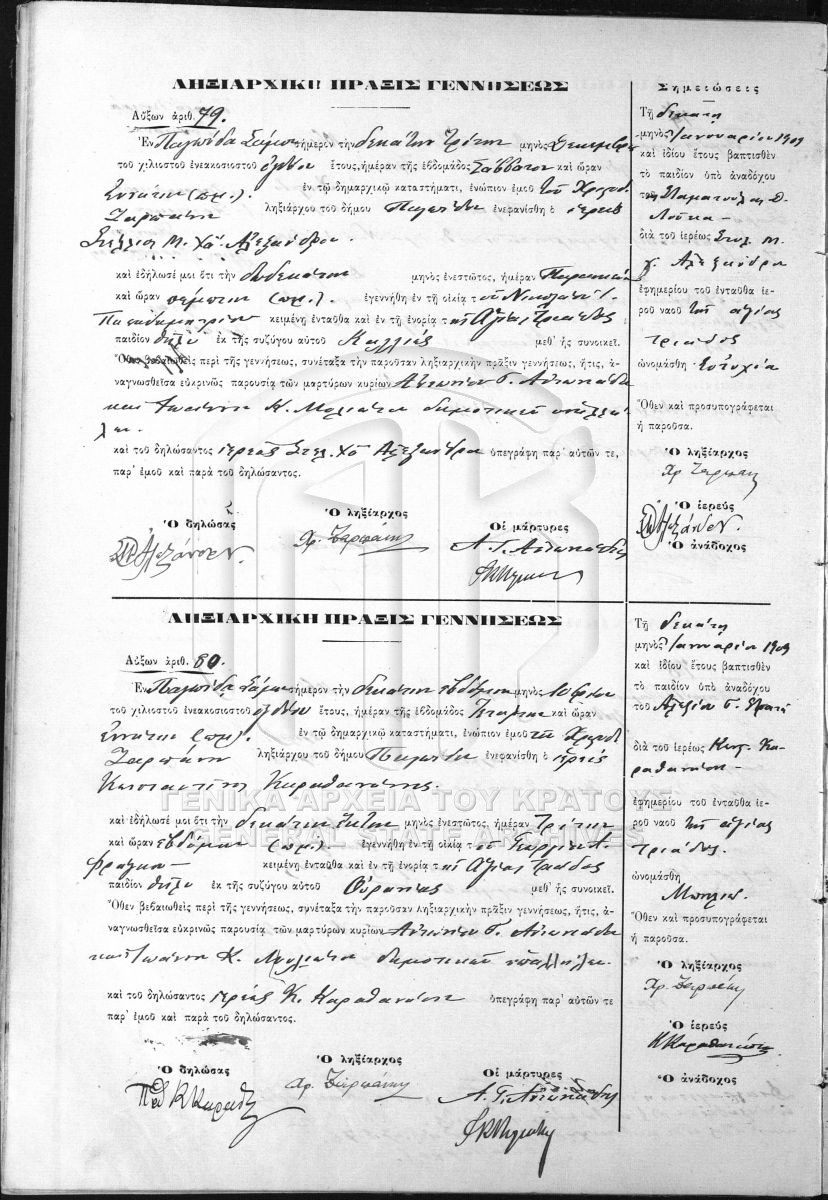 ΛΗΞΙΑΡΧΙΚΗ ΠΡΑΞΙΣ ΓΕΝΝΗΣΕΩΣ
Αὔξων ἀριθ. 79.
Ἐν Παγώνδα Σάμου σήμερον τὴν δεκάτην τρίτην μηνὸς Δεκεμβρίου
τοῦ χιλιοστοῦ ἐνεακοσιοστοῦ ὀγδόου ἔτους, ἡμέραν τῆς ἑβδομάδος Σάββατον καὶ ὥραν
ἐννάτην (πμ.) ἐν τῷ δημαρχικῷ καταστήματι, ἐνώπιον ἐμοῦ τοῦ
ληξιάρχου τοῦ δήμου ἐνεφανίσθη ὁ ἱερεὺς
Στέλιος Μ. Χʺ Ἀλεξάνδρου.
καὶ ἐδήλωσέ μοι ὅτι τὴν δωδεκάτην μηνὸς ἐνεστῶτος, ἡμέραν Παρασκευὴν
καὶ ὥραν πέμπτην (πμ.) ἐγεννήθη ἐν τῇ οἰκίᾳ τοῦ Νικολάου Ι.
Παπαδημητρίου κειμένῃ ἐνταῦθα καὶ ἐν τῇ ἐνορίᾳ τῆς Ἁγίας Τριάδος
παιδίον θῆλυ ἐκ τῆς συζύγου αὐτοῦ Καλλιόπης μεθ' ἧς συνοικεῖ.
Ὅθεν βεβαιωθεὶς περὶ τῆς γεννήσεως, συνέταξα τὴν παροῦσαν ληξιαρχικὴν πρᾶξιν γεννήσεως, ἥτις, ἀ-
ναγνωσθεῖσα εὐκρινῶς παρουσίᾳ τῶν μαρτύρων κυρίων Ἀντωνίου Γ. Ἀντωνιάδου
καὶ Ἰωάννου Κ. δημοτικοῦ ὑπαλλή-
λου.
καὶ τοῦ δηλώσαντος ἱερέως Στελ. Χʺ Ἀλεξάνδρου ὑπεγράφη παρ' αὐτῶν τε,
παρ' ἐμοῦ καὶ παρὰ τοῦ δηλώσαντος.
Ὁ δηλώσας
Ὁ ληξίαρχος
Οἱ μάρτυρες
Α. Γ. Ἀντωνιάδης
Σημειώσεις
Τῇ δεκάτῃ
μηνὸς Ἰανουαρίου 1909
καὶ ἰδίου ἔτους βαπτισθὲν
τὸ παιδίον ὑπὸ ἀναδόχου
τῆς Σταματούλας Δ.
Λουκα
διὰ τοῦ ἱερέως Στυλ. Μ.
Χʺ Ἀλεξάνδρου
ἐφημερίου τοῦ ἐνταῦθα ἱε-
ροῦ ναοῦ τῆς ἁγίας
τριάδος
ὠνομάσθη Εὐτυχία
Ὅθεν καὶ προσυπογράφεται
ἡ παροῦσα.
Ὁ ληξίαρχος
Ὁ ἱερεὺς
Ὁ ἀνάδοχος
ΛΗΞΙΑΡΧΙΚΗ ΠΡΑΞΙΣ ΓΕΝΝΗΣΕΩΣ
Αὔξων ἀριθ. 80.
Ἐν Παγώνδα Σάμου σήμερον τὴν δεκάτην ἑβδόμην μηνὸς
τοῦ χιλιοστοῦ ἐνεακοσιοστοῦ ὀγδόου ἔτους, ἡμέραν τῆς ἑβδομάδος Τετάρτην καὶ ὥραν
ἐννάτην (πμ.) ἐν τῷ δημαρχικῷ καταστήματι, ἐνώπιον ἐμοῦ τοῦ
ληξιάρχου τοῦ δήμου ἐνεφανίσθη ὁ ἱερεὺς
Κωνσταντῖνος Καραθανάσης.
καὶ ἐδήλωσέ μοι ὅτι τὴν δεκάτην ἕκτην μηνὸς ἐνεστῶτος, ἡμέραν Τρίτην
καὶ ὥραν ἑβδόμην (πμ.) ἐγεννήθη ἐν τῇ οἰκίᾳ τοῦ Γεωργίου Α.
κειμένῃ ἐνταῦθα καὶ ἐν τῇ ἐνορίᾳ τῆς Ἁγίας Τριάδος
παιδίον θῆλυ ἐκ τῆς συζύγου αὐτοῦ Οὐρανίας μεθ' ἧς συνοικεῖ.
Ὅθεν βεβαιωθεὶς περὶ τῆς γεννήσεως, συνέταξα τὴν παροῦσαν ληξιαρχικὴν πρᾶξιν γεννήσεως, ἥτις, ἀ-
ναγνωσθεῖσα εὐκρινῶς παρουσίᾳ τῶν μαρτύρων κυρίων Ἀντωνίου Γ. Ἀντωνιάδου
καὶ Ἰωάννου Κ. δημοτικοῦ ὑπαλλήλου.
καὶ τοῦ δηλώσαντος ἱερέως Κ. Καραθανάση ὑπεγράφη παρ' αὐτῶν τε
παρ' ἐμοῦ καὶ παρὰ τοῦ δηλώσαντος.
Ὁ δηλώσας
Ὁ ληξίαρχος
Οἱ μάρτυρες
Α. Γ. Ἀντωνιάδης
Τῇ δεκάτῃ
μηνὸς Ἰανουαρίου 1909
καὶ ἰδίου ἔτους βαπτισθὲν
τὸ παιδίον ὑπὸ ἀναδόχου
τοῦ Ἀλεξίου Γ.
διὰ τοῦ ἱερέως Κωνσ. Κα-
ραθανάση
ἐφημερίου τοῦ ἐνταῦθα ἱε-
ροῦ ναοῦ τῆς ἁγίας
τριάδος.
ὠνομάσθη
Ὅθεν καὶ προσυπογράφεται
ἡ παροῦσα.
Ὁ ληξίαρχος
Ὁ ἱερεὺς
Ὁ ἀνάδοχος
ΓΕΝΙΚΑ ΑΡΧΕΙΑ ΤΟΥ ΚΡΑΤΟΥΣ
GENERAL STATE ARCHIVES